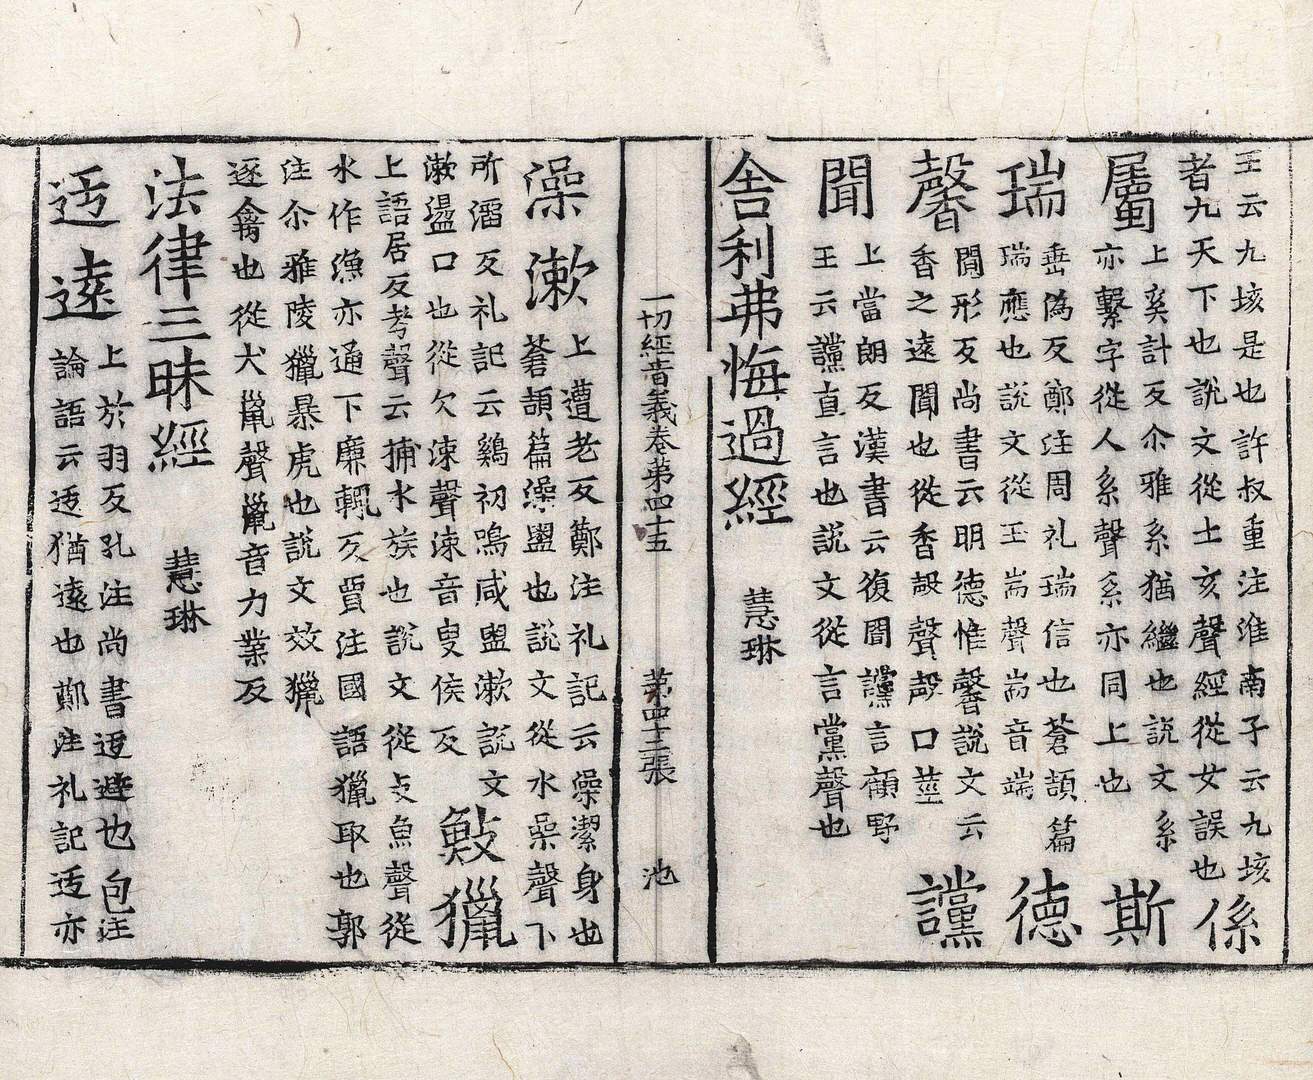 王云九垓是也許叔重注淮南子云九垓
者九天下也說文從土亥聲經從女誤也
係
屬
上奚計反尒雅系猶繼也說文系
亦繫字從人系聲系亦同上也
斯
瑞
垂偽反鄭注周礼瑞信也蒼頡篇
瑞應也說文從王耑聲耑音端
德
馨
䦘形反尚書云明德惟馨說文云
香之遠聞也從香殸聲殸口莖
讜
聞
上當朗反漢書云復聞讜言顧野
王云讜直言也說文從言黨聲也
舍利弗悔過經 慧琳
一切經音義卷第四十五 第四十二張 池
澡漱
上遭老反鄭注礼記云澡潔身也
蒼頡篇澡盥也說文從水喿聲下
所㴞反礼記云鷄初鳴咸盥漱說文
漱盪口也從欠涑聲涑音叟侯反
䱷獵
上語居反考聲云捕水族也說文從攴魚聲從
水作漁亦通下廉輒反賈注國語獵取也郭
注尒雅陵獵暴虎也說文效獵
逐禽也從犬巤聲巤音力業反
法律三昧經 慧琳
迃遠
上於羽反孔注尚書迃避也包注
論語云迃猶遠也鄭注礼記迃亦